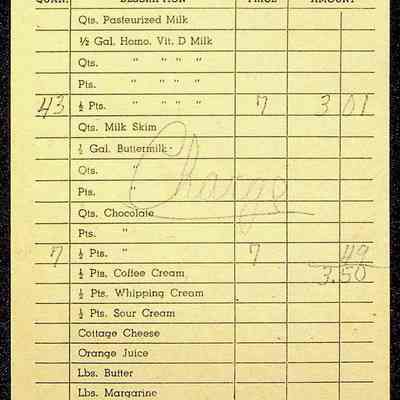 QUAN. DESCRIPTION PRICE AMOUNT
Qts. Pasteurized Milk
½ Gal. Homo. Vit. D Milk
Qts. " " " "
Pts. " " " "
43 ½ Pts. " " " " 7 3 01
Qts. Milk Skim
½ Gal. Buttermilk
Qts. "
Pts. "
Charge
Qts. Chocolate
Pts. "
7 ½ Pts. " 7 49
½ Pts. Coffee Cream 3.50
½ Pts. Whipping Cream
½ Pts. Sour Cream
Cottage Cheese
Orange Juice
Lbs. Butter
Lbs. Margarine